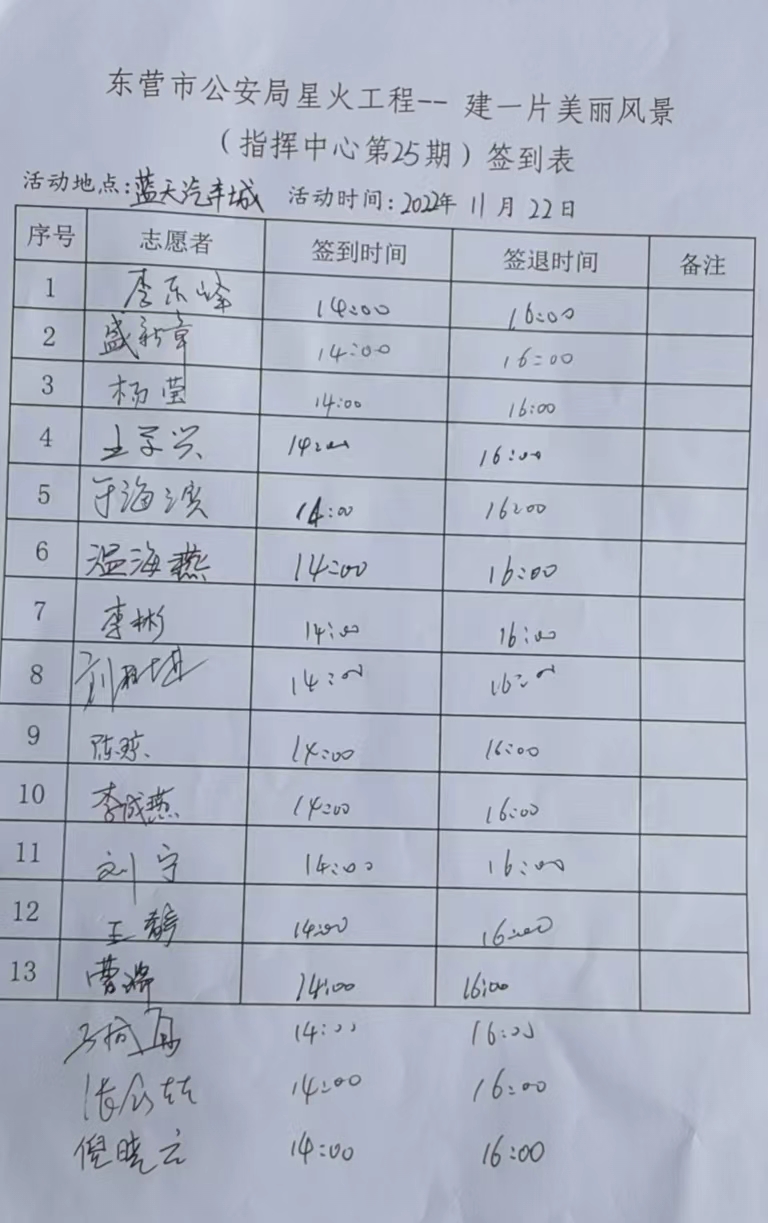 东营市公安局星火工程-- 建一片美丽风景
（指挥中心第25期）签到表
活动地点：蓝天汽车城 活动时间：2022年 11月 22日
序号 志愿者 签到时间 签退时间 备注
1 李东峰 14:00 16:00
2 盛新章 14:00 16:00
3 杨莹 14:00 16:00
4 王学兴 14:00 16:00
5 于海滨 14:00 16:00
6 温海燕 14:00 16:00
7 李彬 14:00 16:00
8 刘 14:00 16:00
9 陈琼 14:00 16:00
10 李成燕 14:00 16:00
11 刘宁 14:00 16:00
12 王 14:00 16:00
13 曹瑞 14:00 16:00
14:00 16:00
14:00 16:00
倪晓云 14:00 16:00